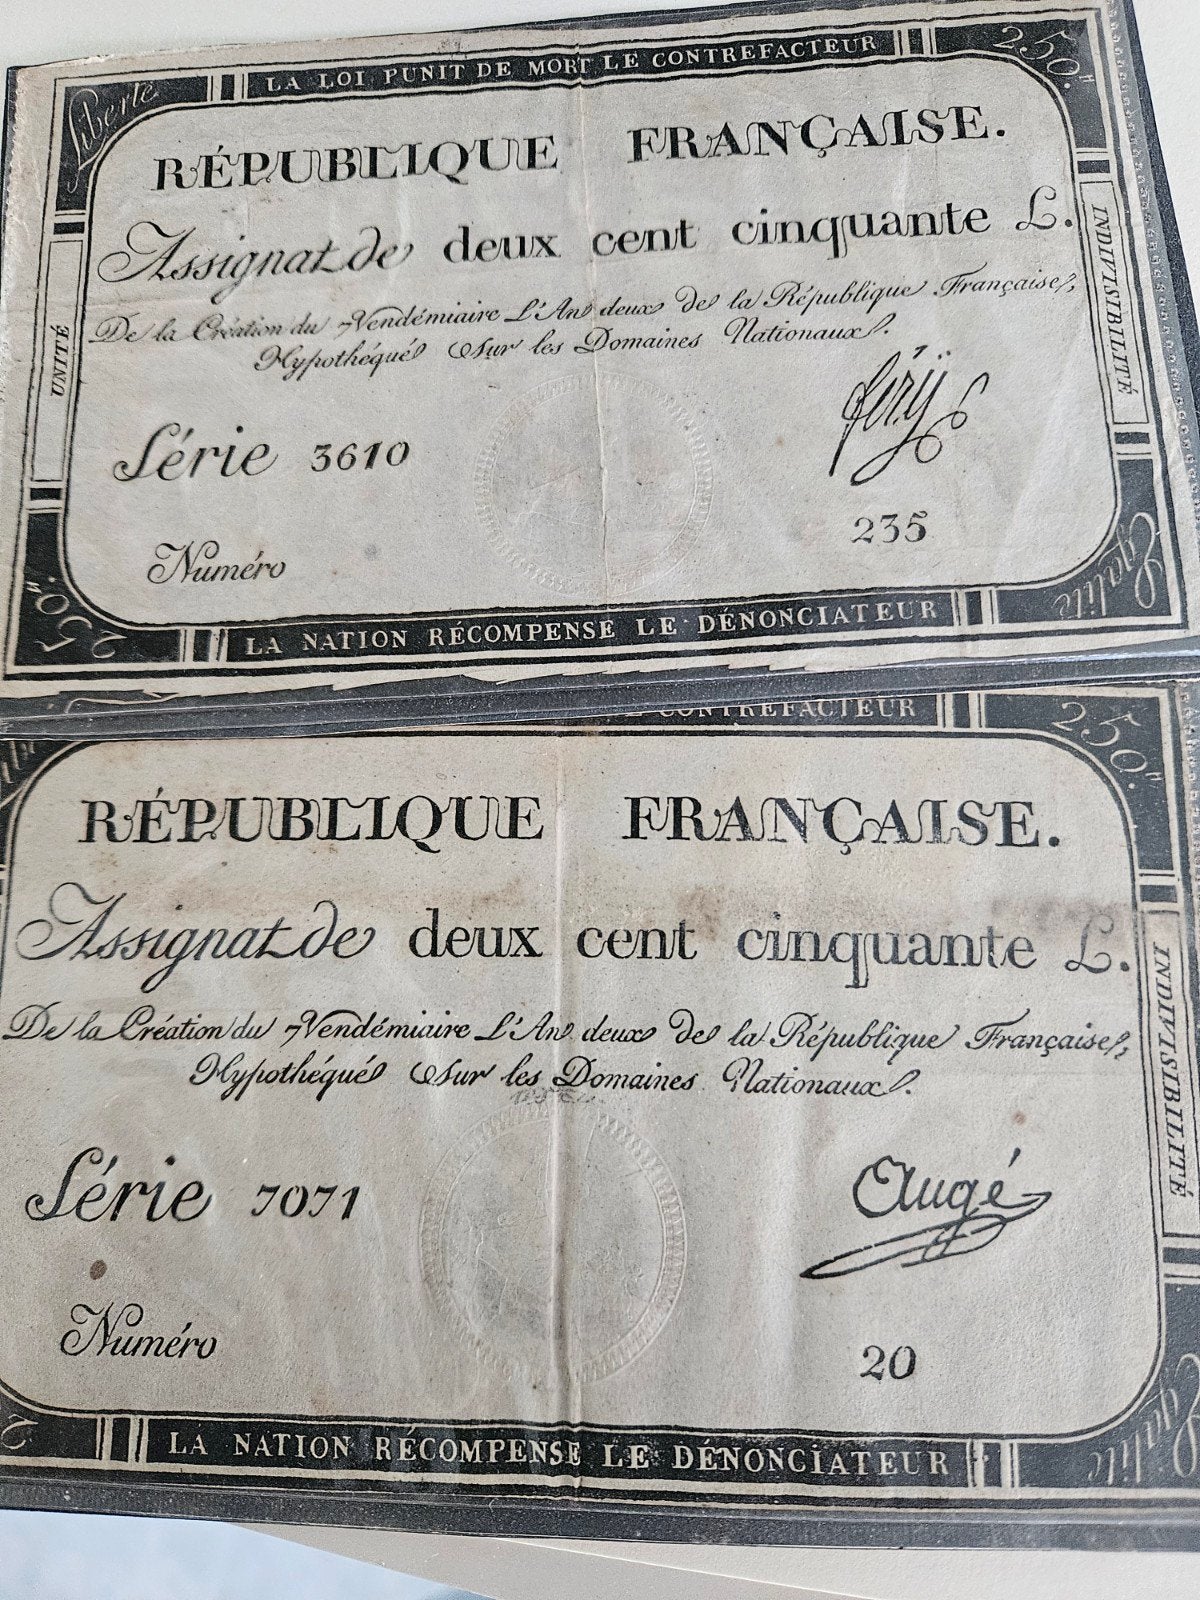 LA LOI PUNIT DE MORT LE CONTREFACTEUR
Liberté
250ᵗᵗ
RÉPUBLIQUE FRANÇAISE.
Assignat de deux cent cinquante L.
De la Création du 7 Vendémiaire L'An deux de la République Française,
Hypothéqué Sur les Domaines Nationaux.
UNITÉ
INDIVISIBILITÉ
Série 3610
féry
235
Numéro
250
Egalité
LA NATION RÉCOMPENSE LE DÉNONCIATEUR
LE CONTREFACTEUR
250ᵗᵗ
RÉPUBLIQUE FRANÇAISE.
Assignat de deux cent cinquante L.
De la Création du 7 Vendémiaire L'An deux de la République Française,
Hypothéqué Sur les Domaines Nationaux.
INDIVISIBILITÉ
Série 7071
Augé
Numéro
20
Egalité
LA NATION RÉCOMPENSE LE DÉNONCIATEUR